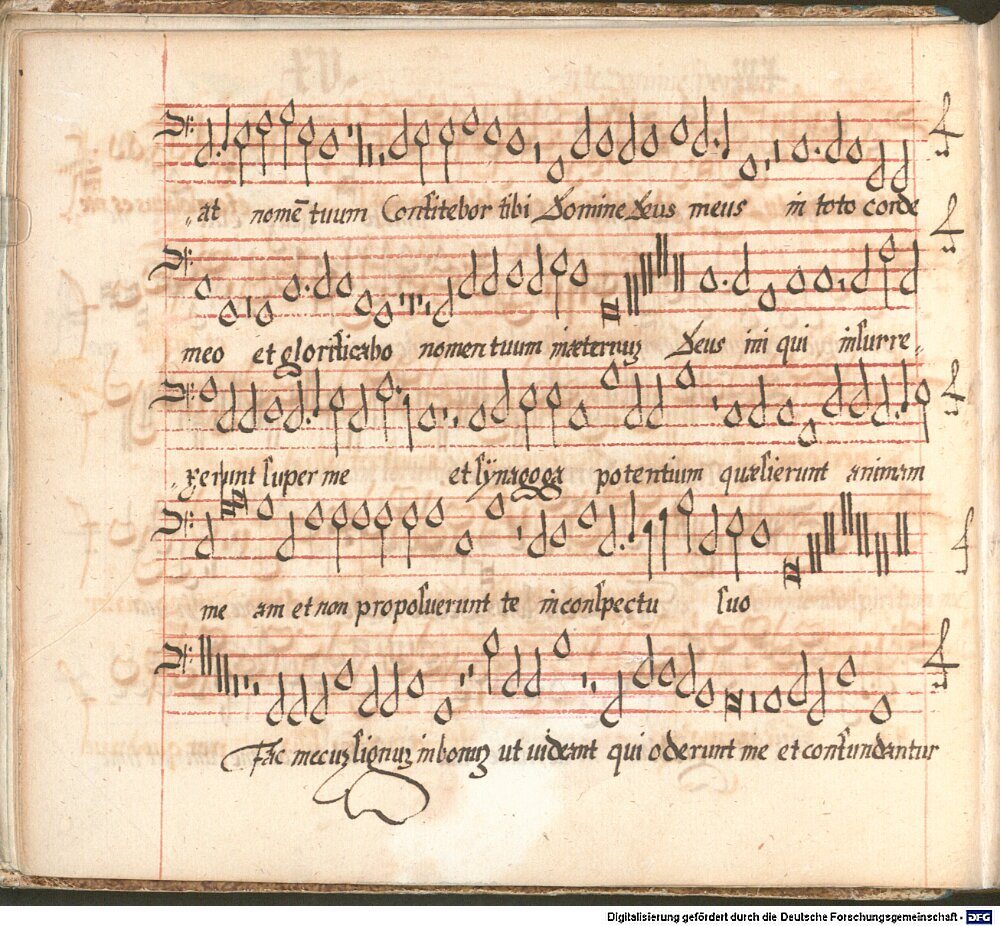 at nomē tuum Confitebor tibi Domine Deus meus in toto corde
meo et glorificabo nomen tuum inæternuʒ Deus in qui insurre„
xerunt super me et sÿnagoga potentium quæsierunt animam
me am et non proposuerunt te in conspectu suo
Fac mecuʒ signuʒ inbonuʒ ut uideant qui oderunt me et confundantur
Digitalisierung gefördert durch die Deutsche Forschungsgemeinschaft - DFG